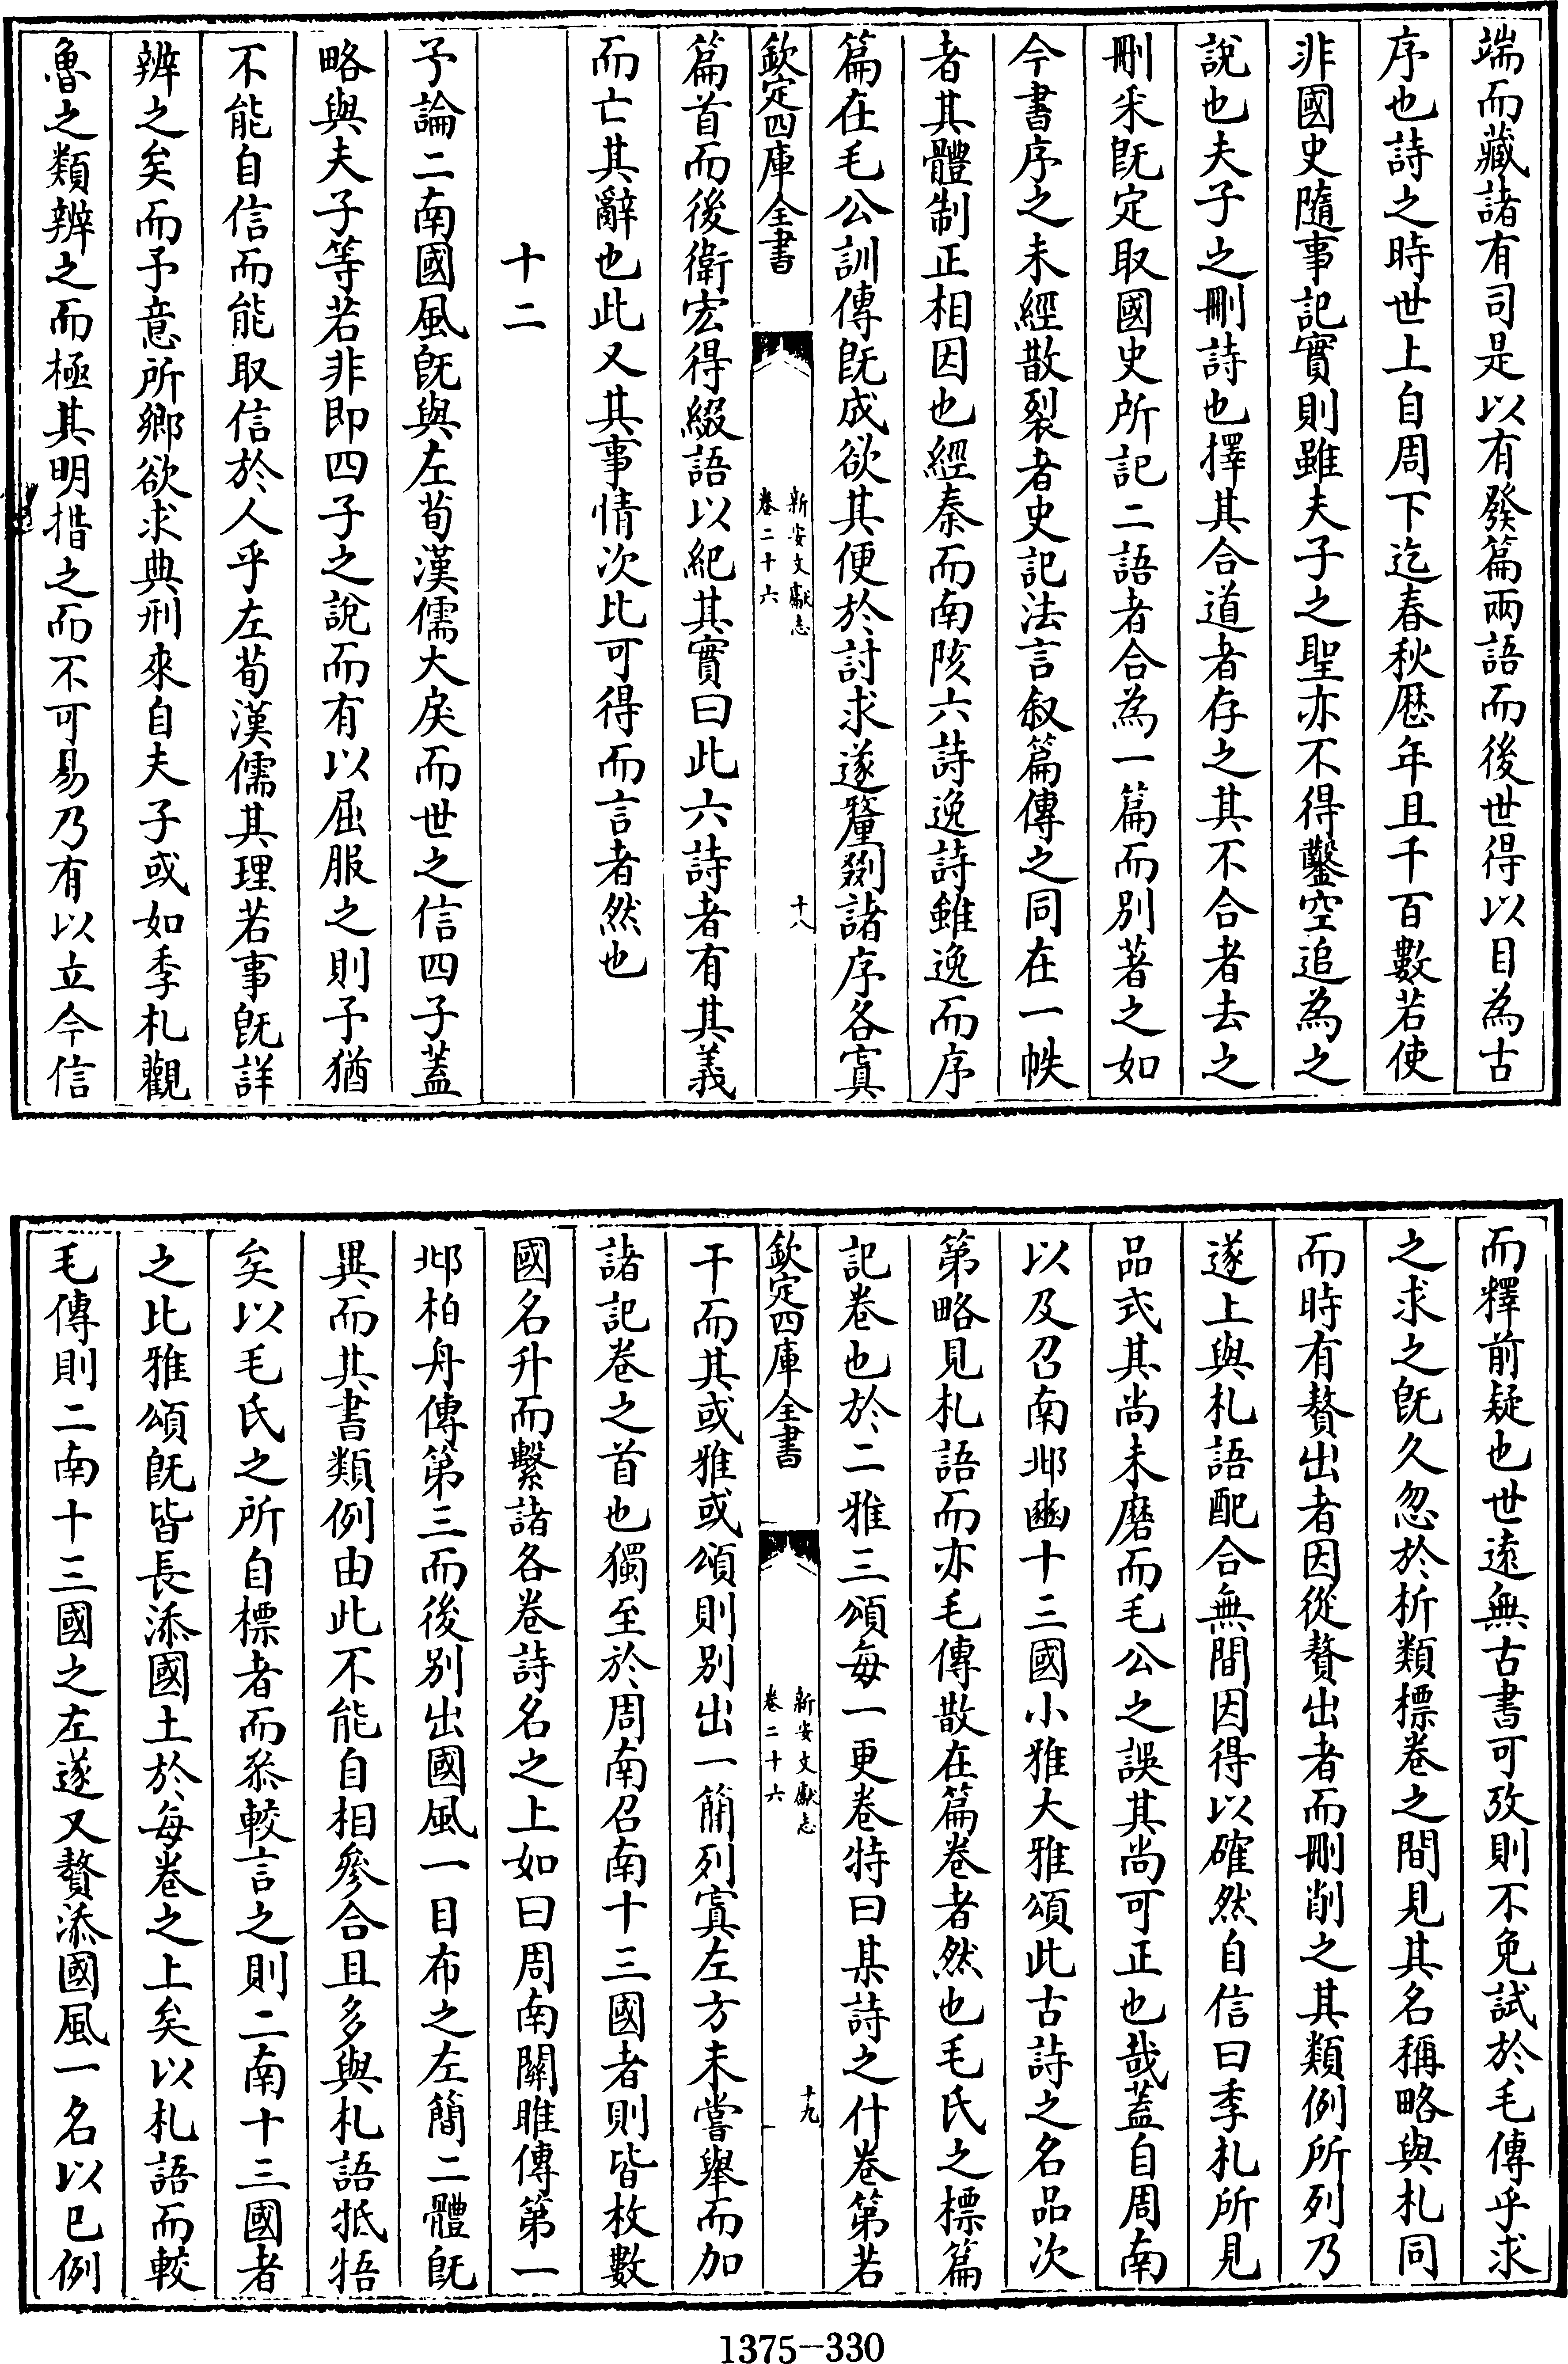 端而藏諸有司是以有發篇兩語而後世得以目為古
序也詩之時世上自周下迄春秋歷年且千百數若使
非國史隨事記實則雖夫子之聖亦不得鑿空追為之
說也夫子之刪詩也擇其合道者存之其不合者去之
刪采旣定取國史所記二語者合為一篇而別著之如
今書序之未經散裂者史記法言叙篇傳之同在一帙
者其體制正相因也經秦而南陔六詩逸詩雖逸而序
篇在毛公訓傳旣成欲其便於討求遂釐剟諸序各寘
欽定四庫全書
新安文獻志
卷二十六
十八
篇首而後衛宏得綴語以紀其實曰此六詩者有其義
而亡其辭也此又其事情次比可得而言者然也
十二
予論二南國風旣與左荀漢儒大戾而世之信四子蓋
略與夫子等若非即四子之說而有以屈服之則予猶
不能自信而能取信於人乎左荀漢儒其理若事旣詳
辨之矣而予意所鄉欲求典刑來自夫子或如季札觀
魯之類辨之而極其明措之而不可易乃有以立今信
而釋前疑也世遠無古書可攷則不免試於毛傳乎求
之求之旣久忽於析類標卷之間見其名稱略與札同
而時有贅出者因從贅出者而刪削之其類例所列乃
遂上與札語配合無間因得以確然自信曰季札所見
品式其尚未磨而毛公之誤其尚可正也哉蓋自周南
以及召南邶豳十三國小雅大雅頌此古詩之名品次
第略見札語而亦毛傳散在篇卷者然也毛氏之標篇
記卷也於二雅三頌每一更卷特曰某詩之什卷第若
欽定四庫全書
新安文獻志
卷二十六
十九
干而其或雅或頌則別出一簡列寘左方未嘗舉而加
諸記卷之首也獨至於周南召南十三國者則皆枚數
國名升而繫諸各卷詩名之上如曰周南關雎傳第一
邶柏舟傳第三而後別出國風一目布之左簡二體旣
異而其書類例由此不能自相參合且多與札語牴牾
矣以毛氏之所自標者而叅較言之則二南十三國者
之比雅頌旣皆長添國土於每卷之上矣以札語而較
毛傳則二南十三國之左遂又贅添國風一名以已例
1375-330